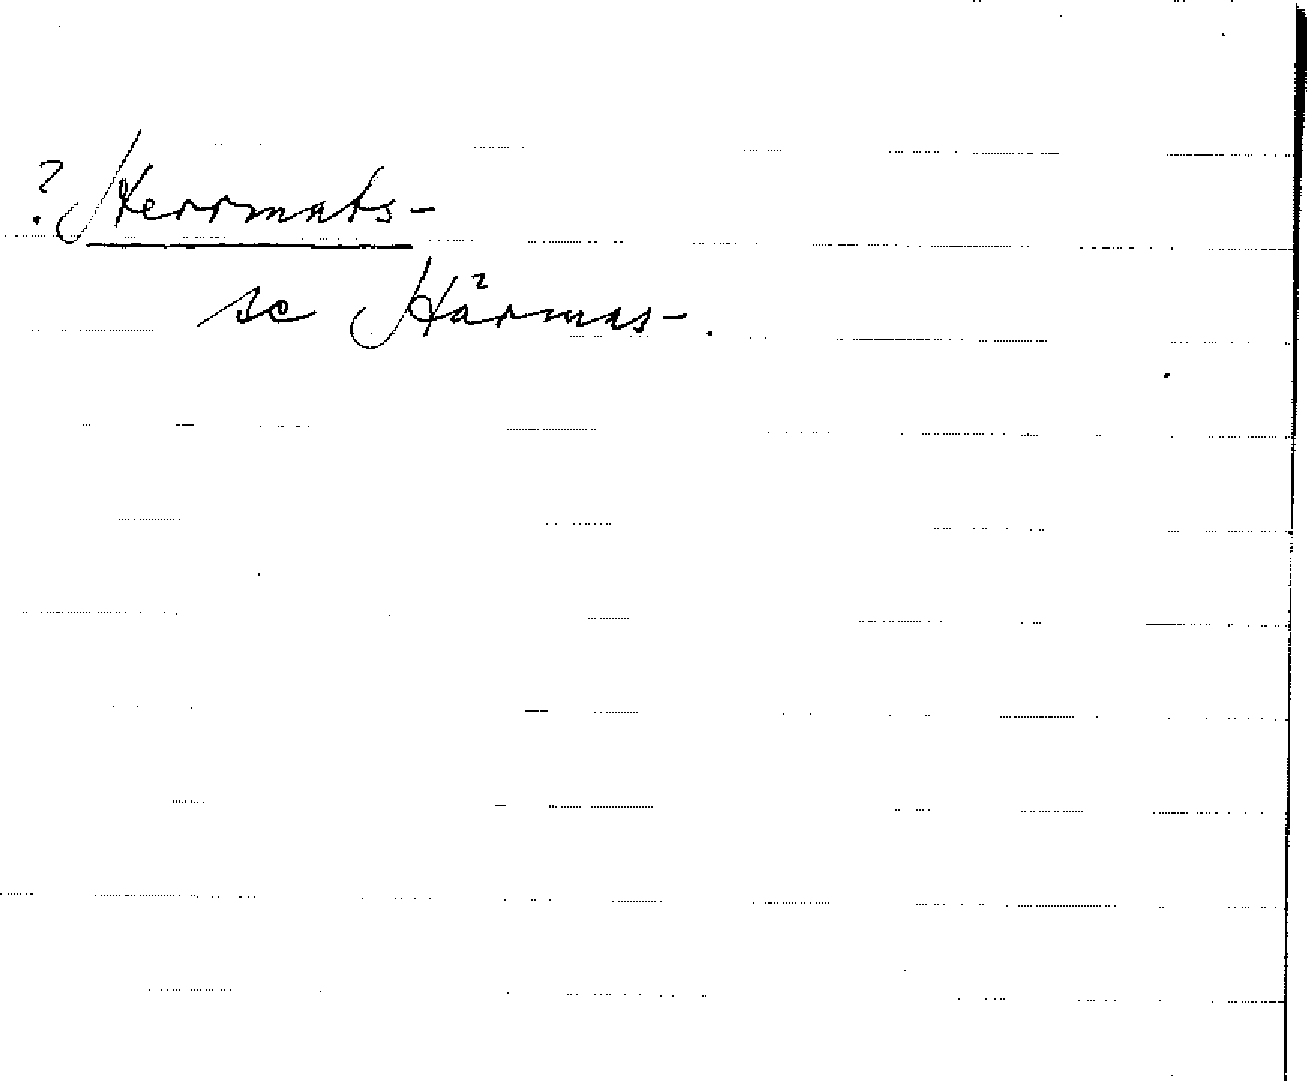 ? Herrmats-
se Härmas-.